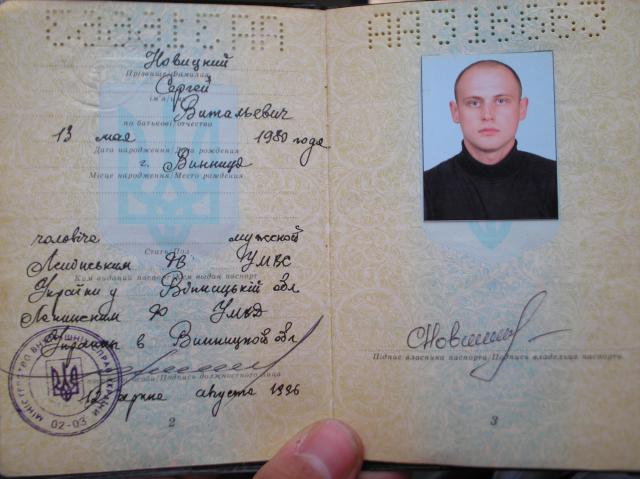 Новицкий
Прізвище/Фамилия
Сергей
ім'я/имя
Витальевич
по батькові/отчество
13 мая 1980 года
Дата народження/Дата рождения
г. Винница
Місце народження/Место рождения
чоловіча мужской
Стать/Пол
Ленінським РВ УМВС
Ким виданий паспорт/Кем выдан паспорт
України у Вінницькій обл
Ленинским УМВД
Украины в Винницкой обл
особи/Подпись должностного лица
серпня августа 1996
МІНІСТЕРСТВО ВНУТРІШНІХ СПРАВ УКРАЇНИ
02-03
2
Підпис власника паспорта/Подпись владельца паспорта
3